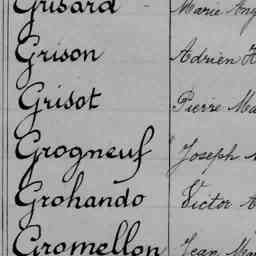 Grisard Marie Ang
Grison Adrien
Grisot Pierre Ma
Grogneuf Joseph
Grohando Victor
Gromellon Jean